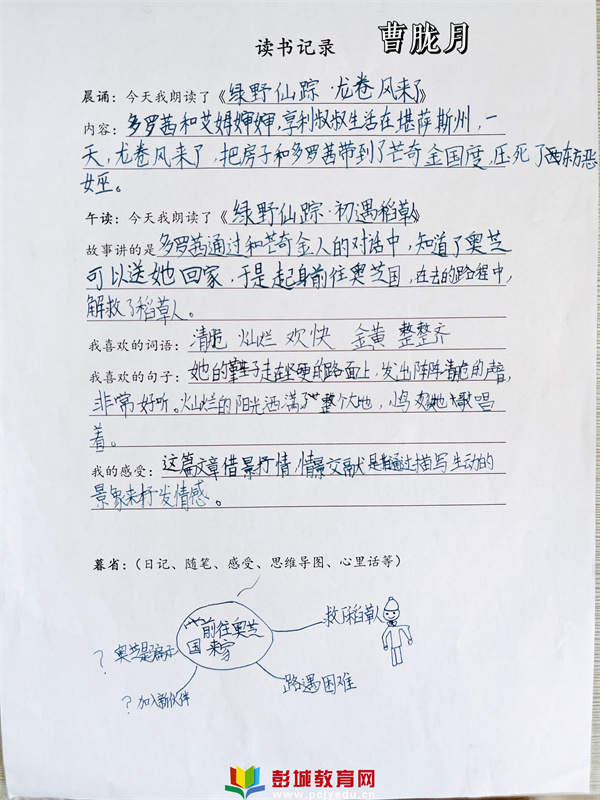 读书记录 曹胧月
晨诵：今天我朗读了《绿野仙踪·龙卷风来了》
内容：多罗茜和艾姆婶婶，亨利叔叔生活在堪萨斯州，一
天，龙卷风来了，把房子和多罗茜带到了芒奇金国度，压死了西东方恶
女巫。
午读：今天我朗读了《绿野仙踪·初遇稻草人》
故事讲的是多罗茜通过和芒奇金人的对话中，知道了奥芝
可以送她回家，于是起身前往奥芝国，在去的路程中，
解救了稻草人。
我喜欢的词语：清脆 灿烂 欢快 金黄 整整齐
我喜欢的句子：她的鞋子走在坚硬的路面上，发出阵阵清脆的声音，
非常好听。灿烂的阳光洒满了整个大地，小鸟欢快地歌唱
着。
我的感受：这篇文章借景抒情，情景交融是通过描写生动的
景象来抒发情感。
暮省：（日记、随笔、感受、思维导图、心里话等）
前往奥芝
国
救下稻草人
？奥芝是
？加入新伙伴
路遇困难
彭城教育网
www.pcjyedu.cn